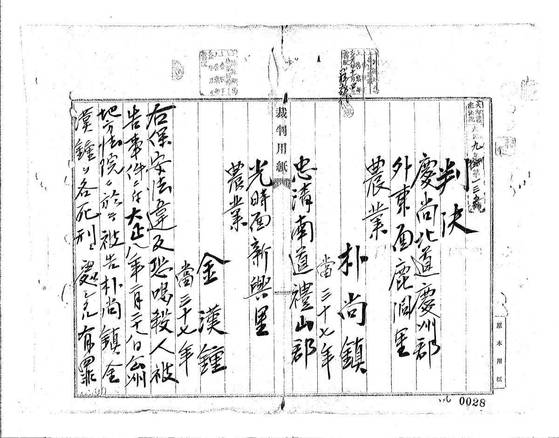 判決
慶尚北道慶州郡
外東面鹿洞里
農業
朴尚鎮
當三十七年
忠清南道禮山郡
光時面新興里
農業
金漢鍾
當三十七年
右保安法違反恐喝殺人被
告事件ニ付大正八年二月二十八日公州
地方法院ニ於テ被告朴尚鎮金
漢鍾ヲ各死刑ニ處シタル有罪
裁判用紙
0028